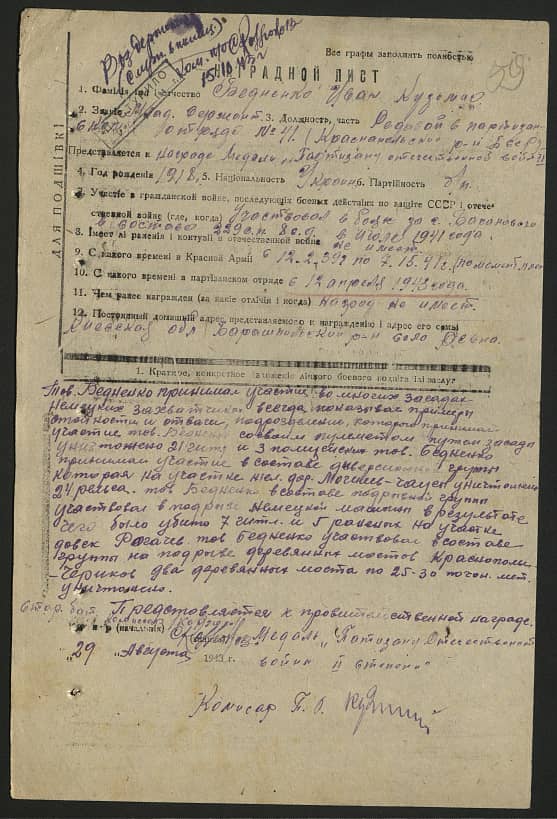 Воздержаться
Все графы заполнить полностью
59
НАГРАДНОЙ ЛИСТ
15/10 43г
ДЛЯ ПОДШИВКІ
1. Фамілія імя і отчество Бедненко Иван Кузьмич
2. Звание Млад. Сержант. 3. Должность, часть Рядовой в партизан-
отряде № 41 (Краснопольский р-н БССР)
Представляется к награде Медали „Партизану отечественной войны II
4. Год рождения 1918, 5. Национальность Украин 6. Партийность б/п.
7. Участие в гражданской войне, последующіх боевых действіях по защите СССР і отече-
ственной войне (где, когда) Участвовал в боях за с.
в составе 8 с.д. в Июле 1941 года.
8. Імеет лі раненія і контузіі в отечественной войне не имеет
9. С какого времени в Красной Армии с 12.2.39г по 7.15.41г.
10. С какого времени в партизанском отряде с 12 апреля 1943 года.
11. Чем ранее награжден (за какіе отлічія і когда) Наград не имеет.
12. Постоянный домашний адрес представляемого к награждению і адрес его семьі
Киевская обл. р-н село
1. Краткое, конкретное ізложеніе лічного боевого подвіга ілі заслуг
Тов. Бедненко принимал участие во многих засадах
Немецких захватчиков всегда показывал примеры
стойкости и отваги, подразделение, которое принимал
участие тов. Бедненко со своим пулеметом
уничтожено 21 гитл и 3 тов. Бедненко
принимал участие в составе диверсионной группы
которая на участке жел. дор. уничтожено
24 рельса. тов Бедненко в составе подрывной группы
участвовал в подрыве немецкой машины в результате
чего было убито 7 гитл. и 5 раненых на участке
Довск Рогачев. тов Бедненко участвовал в составе
группы на подрыве деревянных мостов Краснополье
Чериков два деревянных моста по 25-30 погон. мет.
уничтожено.
Представляется к правительственной награде.
(начальник) Медаль „Патизану Отечественной
„29 „Августа 1943 г. войни II степени"
Комисар П. О.